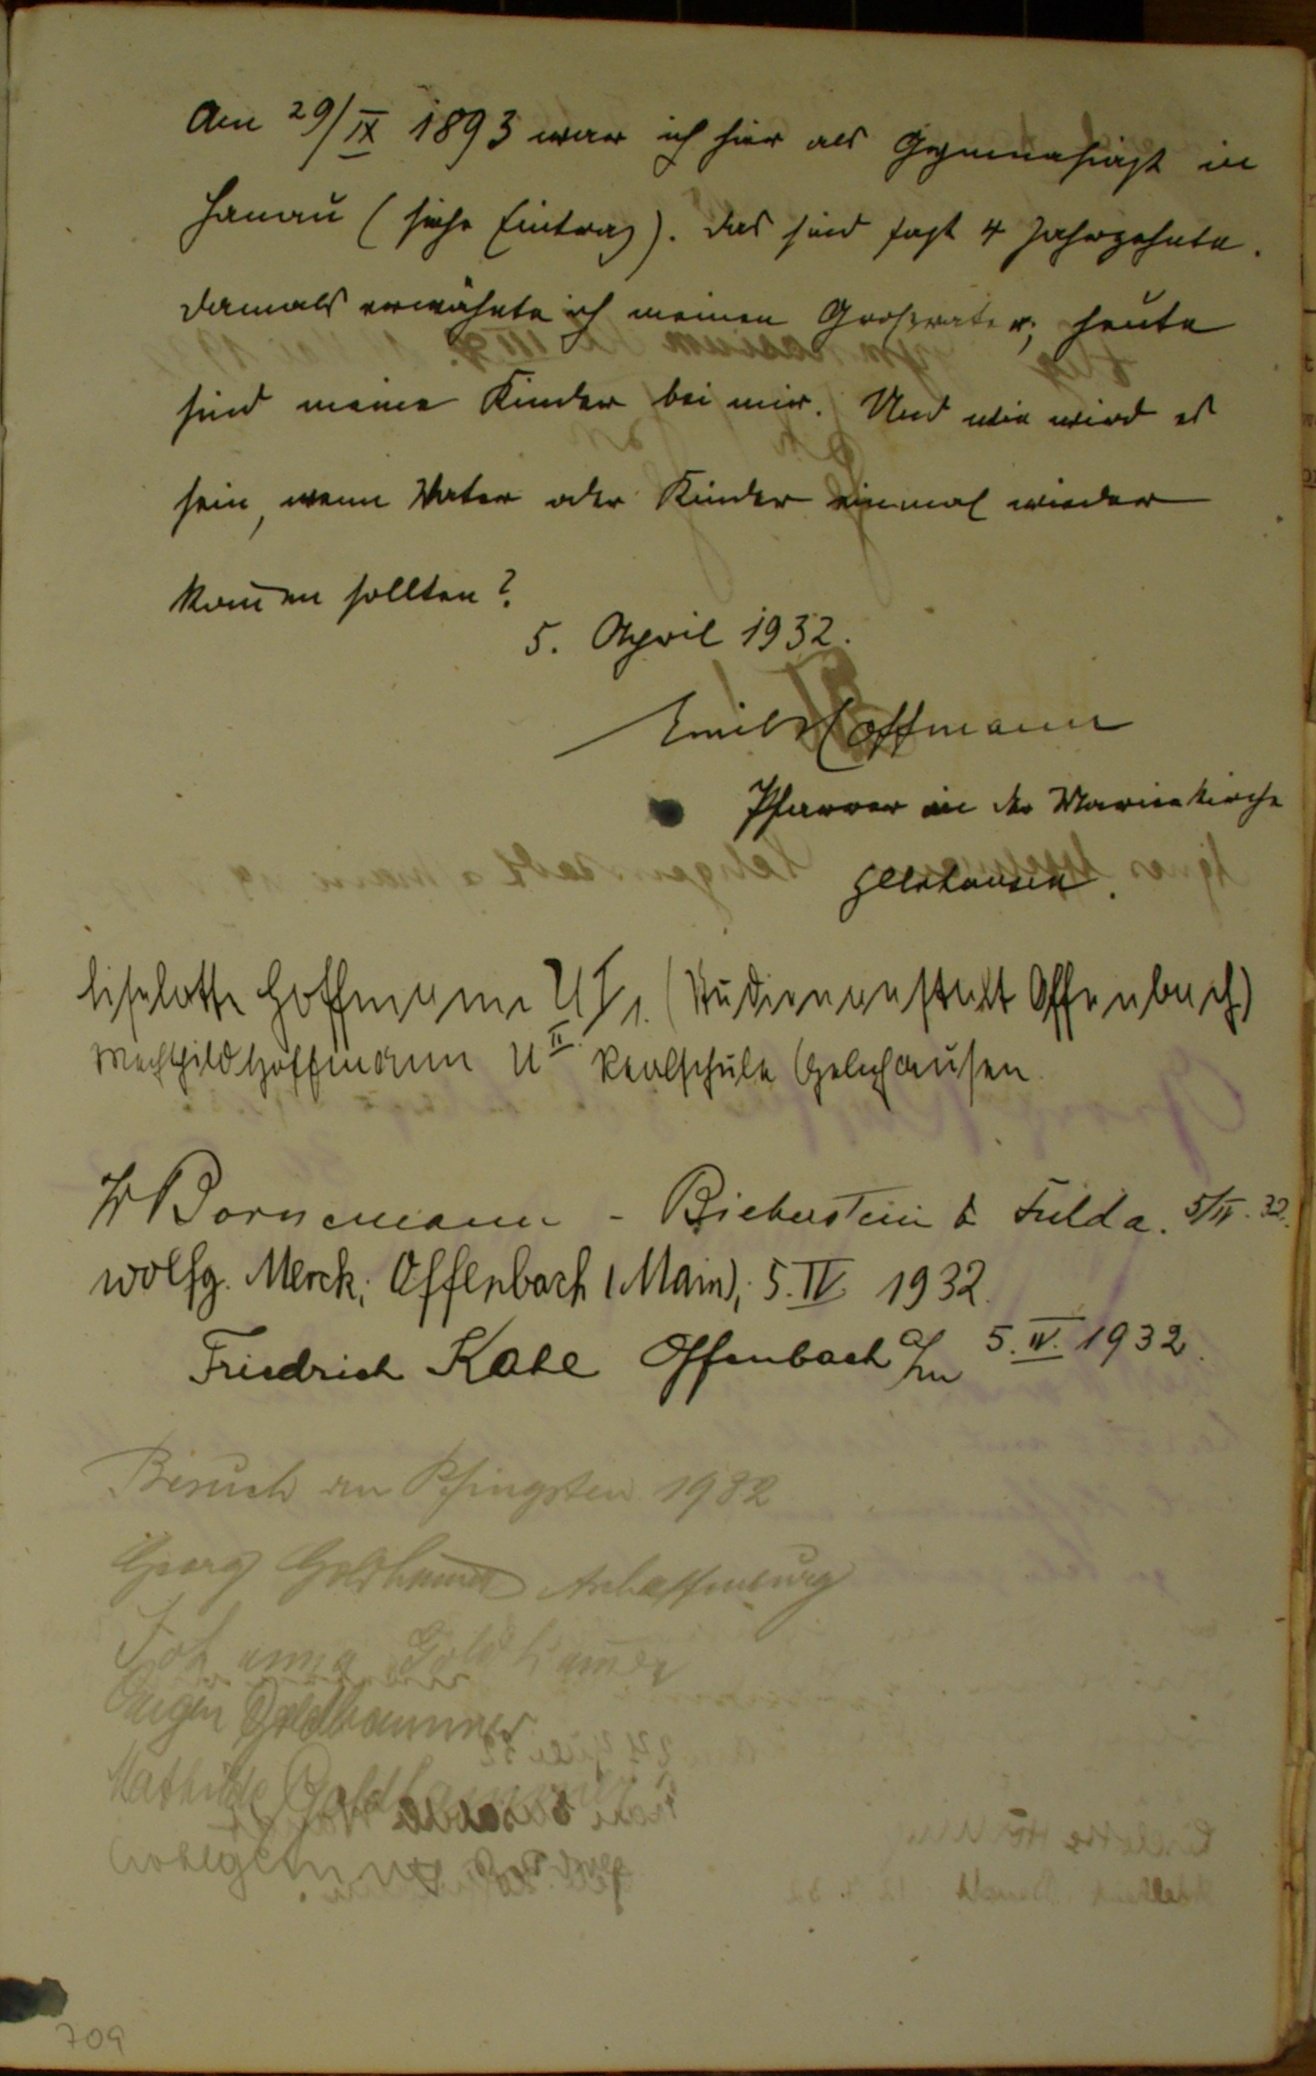 Am 29/IX 1893 war ich hier als Gymnasiast in
Hanau (siehe Eintrag). Das sind fast 4 Jahrzehnte.
Damals erwähnte ich meinen Großvater; heute
sind meine Kinder bei mir. Und wie wird es
sein, wenn Vater oder Kinder einmal wieder
kom̄en sollten?
5. April 1932.
Emil Hoffmann
Pfarrer an der Marienkirche
Gelnhausen.
Liselotte Hoffmann U I 1. (Studienanstalt Offenbach)
Mechthild Hoffmann U II. Realschule Gelnhausen.
W Bornemann - Bieberstein b Fulda. 5/IV. 32.
Wolfg. Merck; Offenbach (Main); 5. IV. 1932.
Friedrich Kahl Offenbach a/m 5. IV. 1932.
Besuch an Pfingsten 1932
Georg Goldhammer Aschaffenburg
Johanna Goldhammer
Eugen Goldhammer
Mathilde Goldhammer
709